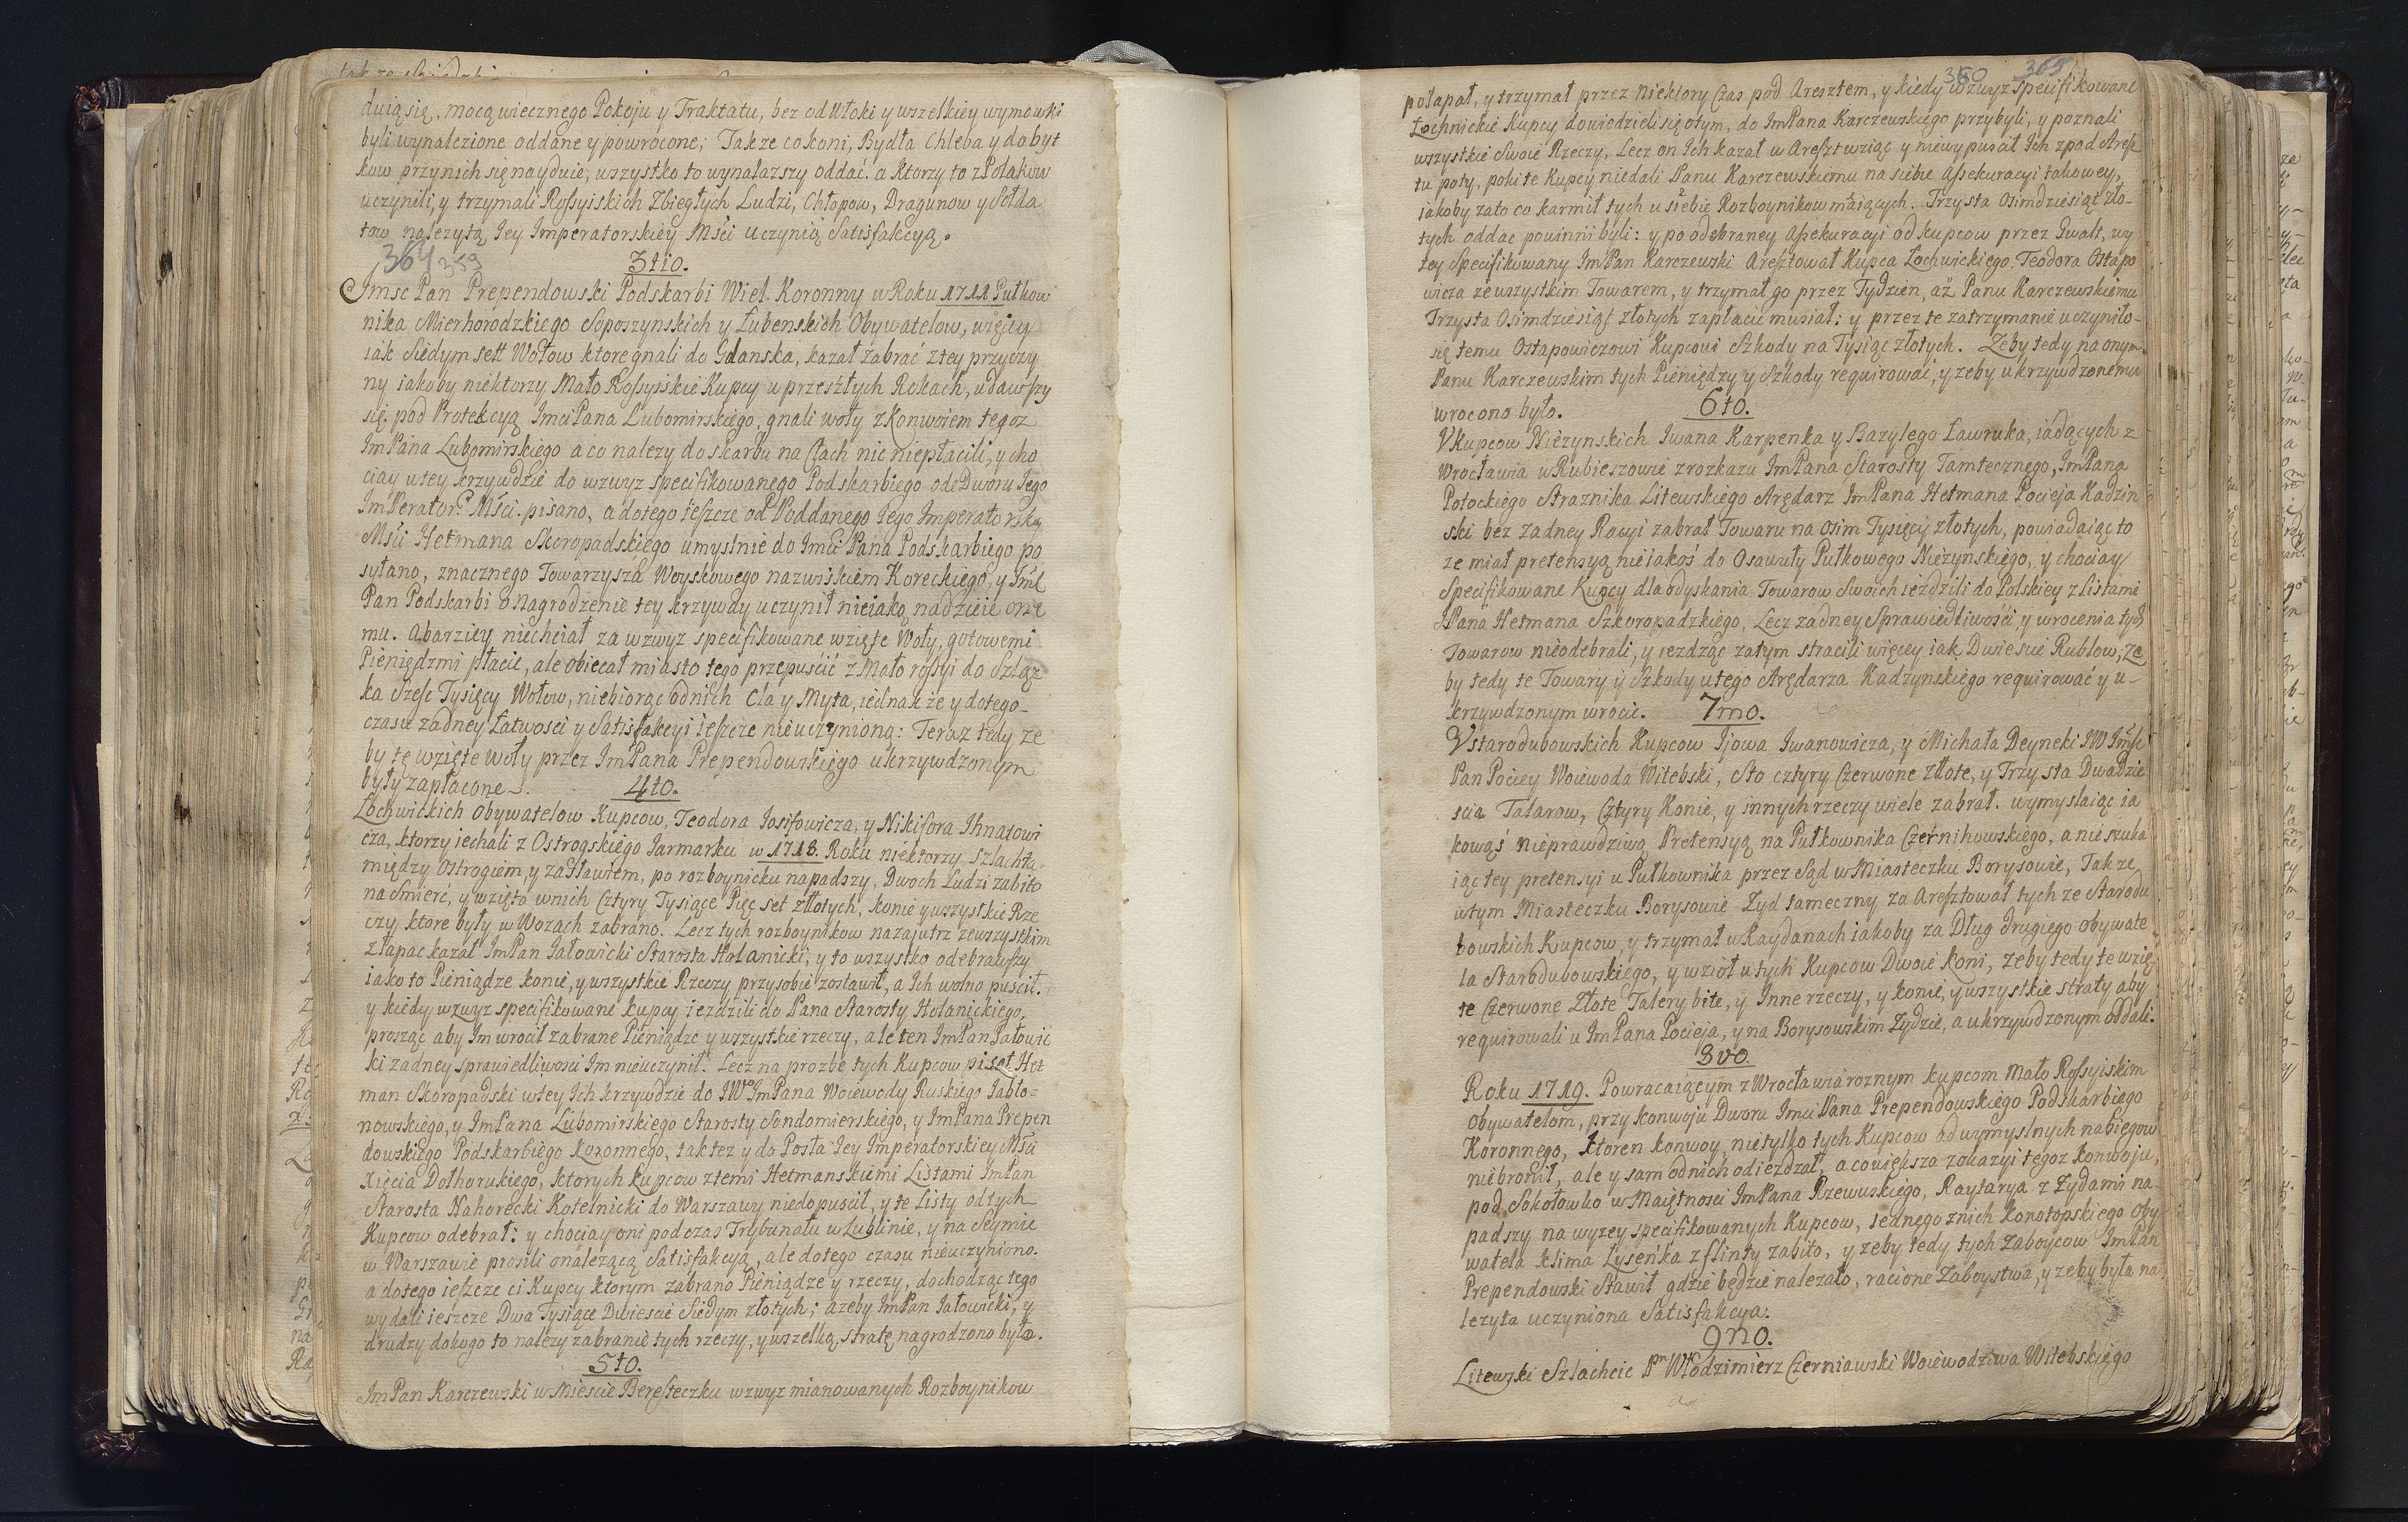 duią się, mocą wiecznego Pokoju y Traktatu, bez odwłoki y wszelkiey wymowki
byli wynalezione oddane y powrocone; Takze co koni, Bydła Chleba y dobyt
kow przynich się nayduie, wszystko to wynalazszy oddać. a ktorzy to z Polakow
uczynili, y trzymali Rossyiskich Zbiegłych Ludzi, Chłopow, Dragunow y Sołda
tow nalezytą Jey Imperatorskiey Mści uczynią Satisfakcyą.
364 359
3tio.
Jmsc Pan Prependowski Podskarbi Wiel. Koronny w Roku 1711 Pułkow
nika Mierhorodzkiego Soposzynskich y Łubenskich Obywatelow, więcey
iak Siedym sett Wołow ktore gnali do Gdanska, kazał zabrać z tey przyczy
ny iakoby niektorzy Mało Rossyiskie Kupcy w przeszłych Rokach, udawszy
się pod Protekcyą Imci Pana Lubomirskiego, gnali woły z Konwoiem tegoz
ImPana Lubomirskiego a co nalezy do skarbu na Cłach nic niepłacili, y cho
ciay w tey krzywdzie do wzwyz specifikowanego Podskarbiego ode Dworu Jego
ImPerator: Mści. pisano, a dotego ieszcze od Poddanego Jego Imperatorskiey
Mści Hetmana Skoropadskiego umyslnie do Imci Pana Podskarbiego po
syłano, znacznego Towarzysza Woyskowego nazwiskiem Koreckiego, y Imć
Pan Podskarbi o Nagrodzenie tey krzywdy uczynił nieiaką nadzieie one
mu. A barziey niechciał za wzwyz specifikowane wzięte Woły, gotowemi
Pieniędzmi płacić, ale obiecał miasto tego przepuścić z Mało rossyi do Szląz
ka Szesc Tysięcy Wołow, niebiorąc od nich Cła y Myta, iednakże y dotego
czasu zadney Łatwosci y Satisfakcyi ieszcze nieuczyniono: Teraz tedy ze
by te wzięte woły przez ImPana Prependowskiego ukrzywdzonym
były zapłacone.
4to.
Łochwickich Obywatelow Kupcow, Teodora Josifowicza, y Nikifora Jhnatowi
cza, ktorzy iechali z Ostrogskiego Jarmarku w 1718. Roku niektorzy Szlachta
między Ostrogiem, y zasławiem, po rozboynicku napadszy, Dwoch Ludzi zabito
na Smierć, y wzięto w nich Cztyry Tysiące Pięc set złotych, konie y wszystkie Rze
czy, ktore były w Wozach zabrano. Lecz tych rozboynikow nazajutrz zewszystkim
złapac kazał ImPan Jałowicki Starosta Holanicki, y to wszystko odebrawszy
iako to Pieniądze konie, y wszystkie Rzeczy przy sobie zostawił, a Ich wolno puścił.
y kiedy wzwyz specifikowane kupcy iezdzili do Pana Starosty Holanickiego,
prosząc aby Im wrocił zabrane Pieniądze y wszystkie rzeczy, ale ten ImPan Jałowic
ki zadney sprawiedliwosci Im nieuczynił. Lecz na prozbe tych Kupcow pisał Het
man Skoropadski w tey Ich krzywdzie do JW ImPana Woiewody Ruskiego Jabło-
nowskiego, y ImPana Lubomirskiego Starosty Sendomierskiego, y ImPana Prepen
dowskiego Podskarbiego Koronnego, taktez y do Posła Jey Imperatorskiey Mści
Xięcia Dołhorukiego, ktorych kupcow z temi Hetmanskiemi Listami ImPan
Starosta Nahorecki Kotelnicki do Warszawy niedopuscił, y te Listy od tych
Kupcow odebrał: y chociay oni podczas Trybunału w Lublinie, y na Seymie
w Warszawie prosili o nalezącą Satisfakcyą, ale dotego czasu nieuczyniono.
a dotego ieszcze ci Kupcy ktorym zabrano Pieniądze y rzeczy, dochodząc tego
wydali ieszcze Dwa Tysiące Dwiescie Siedym złotych; azeby ImPan Jałowicki, y
drudzy do kogo to nalezy zabranie tych rzeczy, y wszelką stratę nagrodzono było.
5to.
ImPan Karczewski w Miescie Beresteczku wzwyz mianowanych Rozboynikow
360 365
połapał, y trzymał przez niektory Czas pod Aresztem, y kiedy wzwyz specifikowane
Łochnickie Kupcy dowiedzieli się o tym, do ImPana Karczewskiego przybyli, y poznali
wszystkie Swoie Rzeczy, Lecz on Ich kazał w Areszt wziąc y niewypuscił Ich z pod Aresz
tu poty, poki te Kupcy niedali Panu Karczewskiemu na siebie Assekuracyi takowey,
iakoby zato co karmił tych u siebie Rozboynikow maiących. Trzysta Osimdziesiąt zło-
tych oddac powinni byli: y po odebraney Assekuracyi od kupcow przez Gwałt, wy
zey Specifikowany ImPan Karczewski Aresztował Kupca Łochwickiego Teodora Ostapo
wicza ze wszystkim Towarem, y trzymał go przez Tydzien, aż Panu Karczewskiemu
Trzysta Osimdziesiąt złotych zapłacic musiał: y przez te zatrzymanie uczyniło-
się temu Ostapowiczowi Kupcowi Szkody na Tysiąc złotych. Zeby tedy na onym
Panu Karczewskim tych Pieniędzy y Szkody requirować, y zeby ukrzywdzonemu
wrocono było.
6to.
V Kupcow Niezynskich Iwana Karpenka y Bazylego Ławruka, iadących z
Wrocławia w Rubieszowie z rozkazu ImPana Starosty Tamtecznego, ImPana
Potockiego Straznika Litewskiego Arędarz ImPana Hetmana Pocieja Kadzin
ski bez zadney Racyi zabrał Towaru na Osim Tysięcy złotych, powiadaiąc to
ze miał pretensyą nieiakoś do Osawuły Pułkowego Nieżynskiego, y chociay
Specifikowane Kupcy dla odyskania Towarow Swoich iezdzili do Polskiey z Listami
JPana Hetmana Szkoropadzkiego, Lecz zadney Sprawiedliwości y wrocenia tych
Towarow nieodebrali, y iezdząc zatym stracili więcey iak Dwiescie Rublow, ze
by tedy te Towary y Szkody u tego Arędarza Kadzynskiego requirować y u-
krzywdzonym wrocic.
7mo.
V starodubowskich Kupcow Ijowa Iwanowicza, y Michała Deyneki JW Imść
Pan Pociey Woiewoda Witebski, Sto cztyry Czerwone Złote, y Trzysta Dwadzie
scia Talarow, Cztyry Konie, y innych rzeczy wiele zabrał. wymyslaiąc ia
kowąś nieprawdziwą Pretensyą na Pułkownika Czernihowskiego, a nie szuka
iąc tey pretensyi u Pułkownika przez Sąd w Miasteczku Borysowie, Takze
w tym Miasteczku Borysowie Zyd tameczny za Aresztował tych ze Starodu
bowskich Kupcow, y trzymał w Kaydanach iakoby za Dług drugiego obywate
la Starodubowskiego, y wzioł u tych Kupcow Dwoie koni, zeby tedy te wzię
te Czerwone Złote Talery bite, y Inne rzeczy, y konie, y wszystkie straty aby
requirowali u ImPana Pocieja, y na Borysowskim Zydzie, a ukrzywdzonym oddali.
8vo.
Roku 1719. Powracaiącym z Wrocławia roznym kupcom Mało Rossyiskim
Obywatelom, przy konwoju Dworu Imci Pana Prependowskiego Podskarbiego
Koronnego, Ktoren konwoy, nietylko tych Kupcow od wymyslnych nabiegow
niebronił, ale y sam od nich odiezdzał, a co większa z okazyi tegoz konwoju,
pod Sokołowko w Maiętnosci ImPana Rzewuskiego, Raytarya z Zydami na-
padszy na wyzey specifikowanych Kupcow, iednego z nich Konotopskiego Oby
watela Klima Lyseńka z flinty zabito, y zeby tedy tych Zaboycow ImPan
Prependowski Stawił gdzie będzie nalezało, racione Zaboystwa, y zeby była na
lezyta uczyniona Satisfakcya.
9no.
Litewski Szlachcic Pn Włodzimierz Czerniawski Woiewodztwa Witebskiego